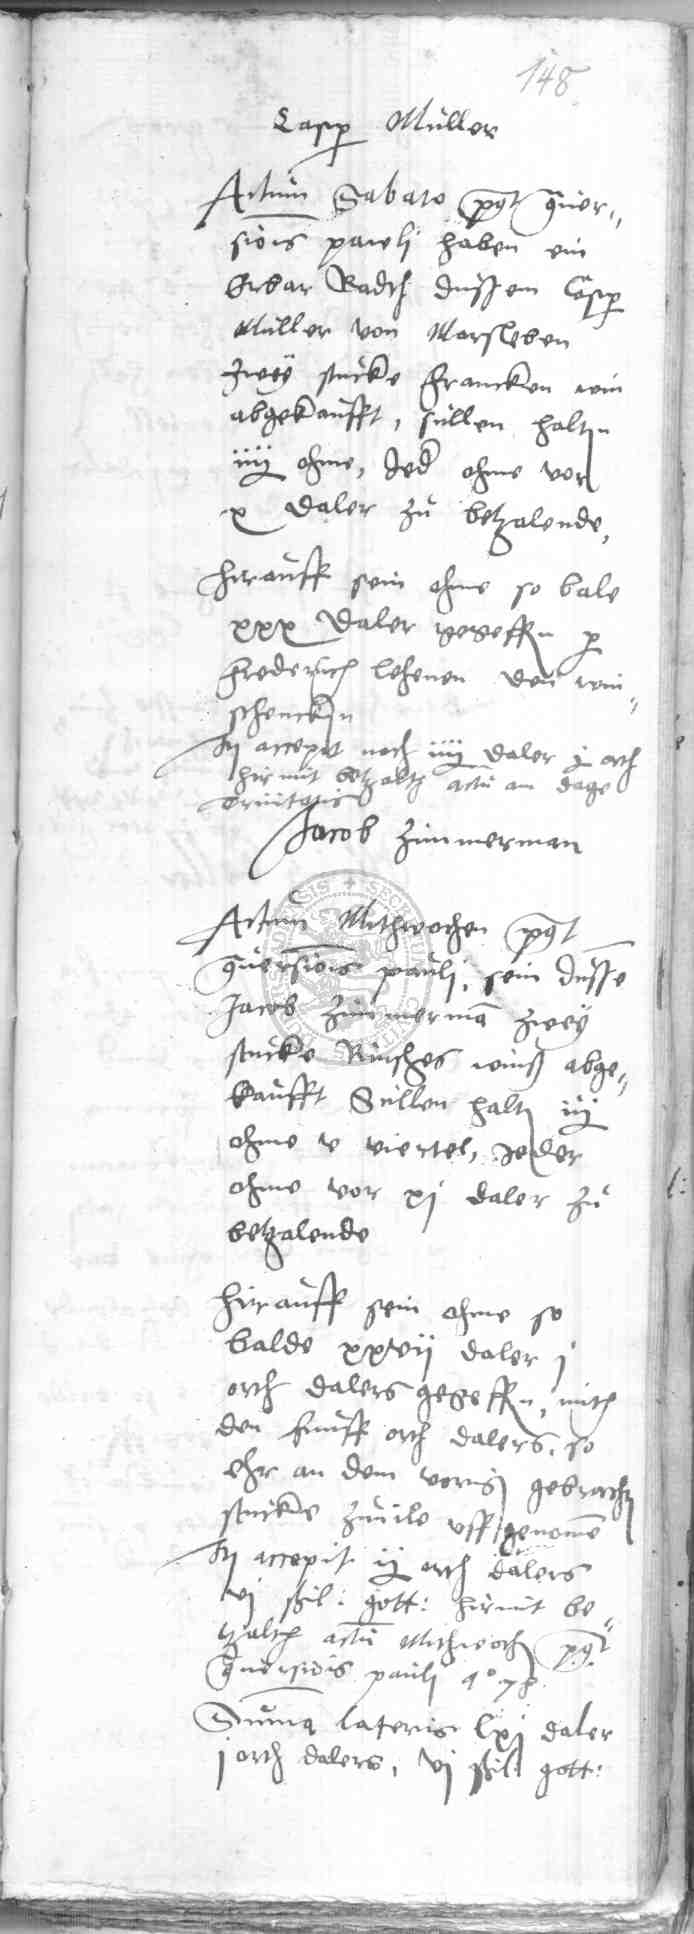 148
Casp Müller
Actum Sabato pqt quer„
sionis pauli haben ein
Erbar Radth dussem Casp
Müller von Morsleben
Zweÿ stucke Francken wein
abgekaufft, sullen haltn
iiij ohme, Jed ohme vor
x daler zu betzalende,
hirauff sein ohme so bale
xxx daler gegeffn p
Frederich lehenen den wein„
schenckn
accepit noch iiij daler j orth
hirmit betzalth actu am dage
trinitatis
Jacob Zimmerman
Actum Mithwochen pqt
quersionis pauli, sein dusse
Jacob Zimmerma zweÿ
stucke Rinsches weins abge„
kaufft Sullen halt iij
ohme v viertel, Jeder
ohme vor xj daler zu
betzalende
hirauff sein ohme so
balde xxvij daler j
orth dalers gegeffn, mith
den funff orth dalers, so
ehr an dem gebrachtn
stucke zuvile uff genomē
accepit ij orth dalers
vj shil: gott: hirmit be„
tzalth actu Mithwoch pqt
quersiois pauli aº 78
Suma lateris lxj daler
j orth dalers, vj shil: gott: